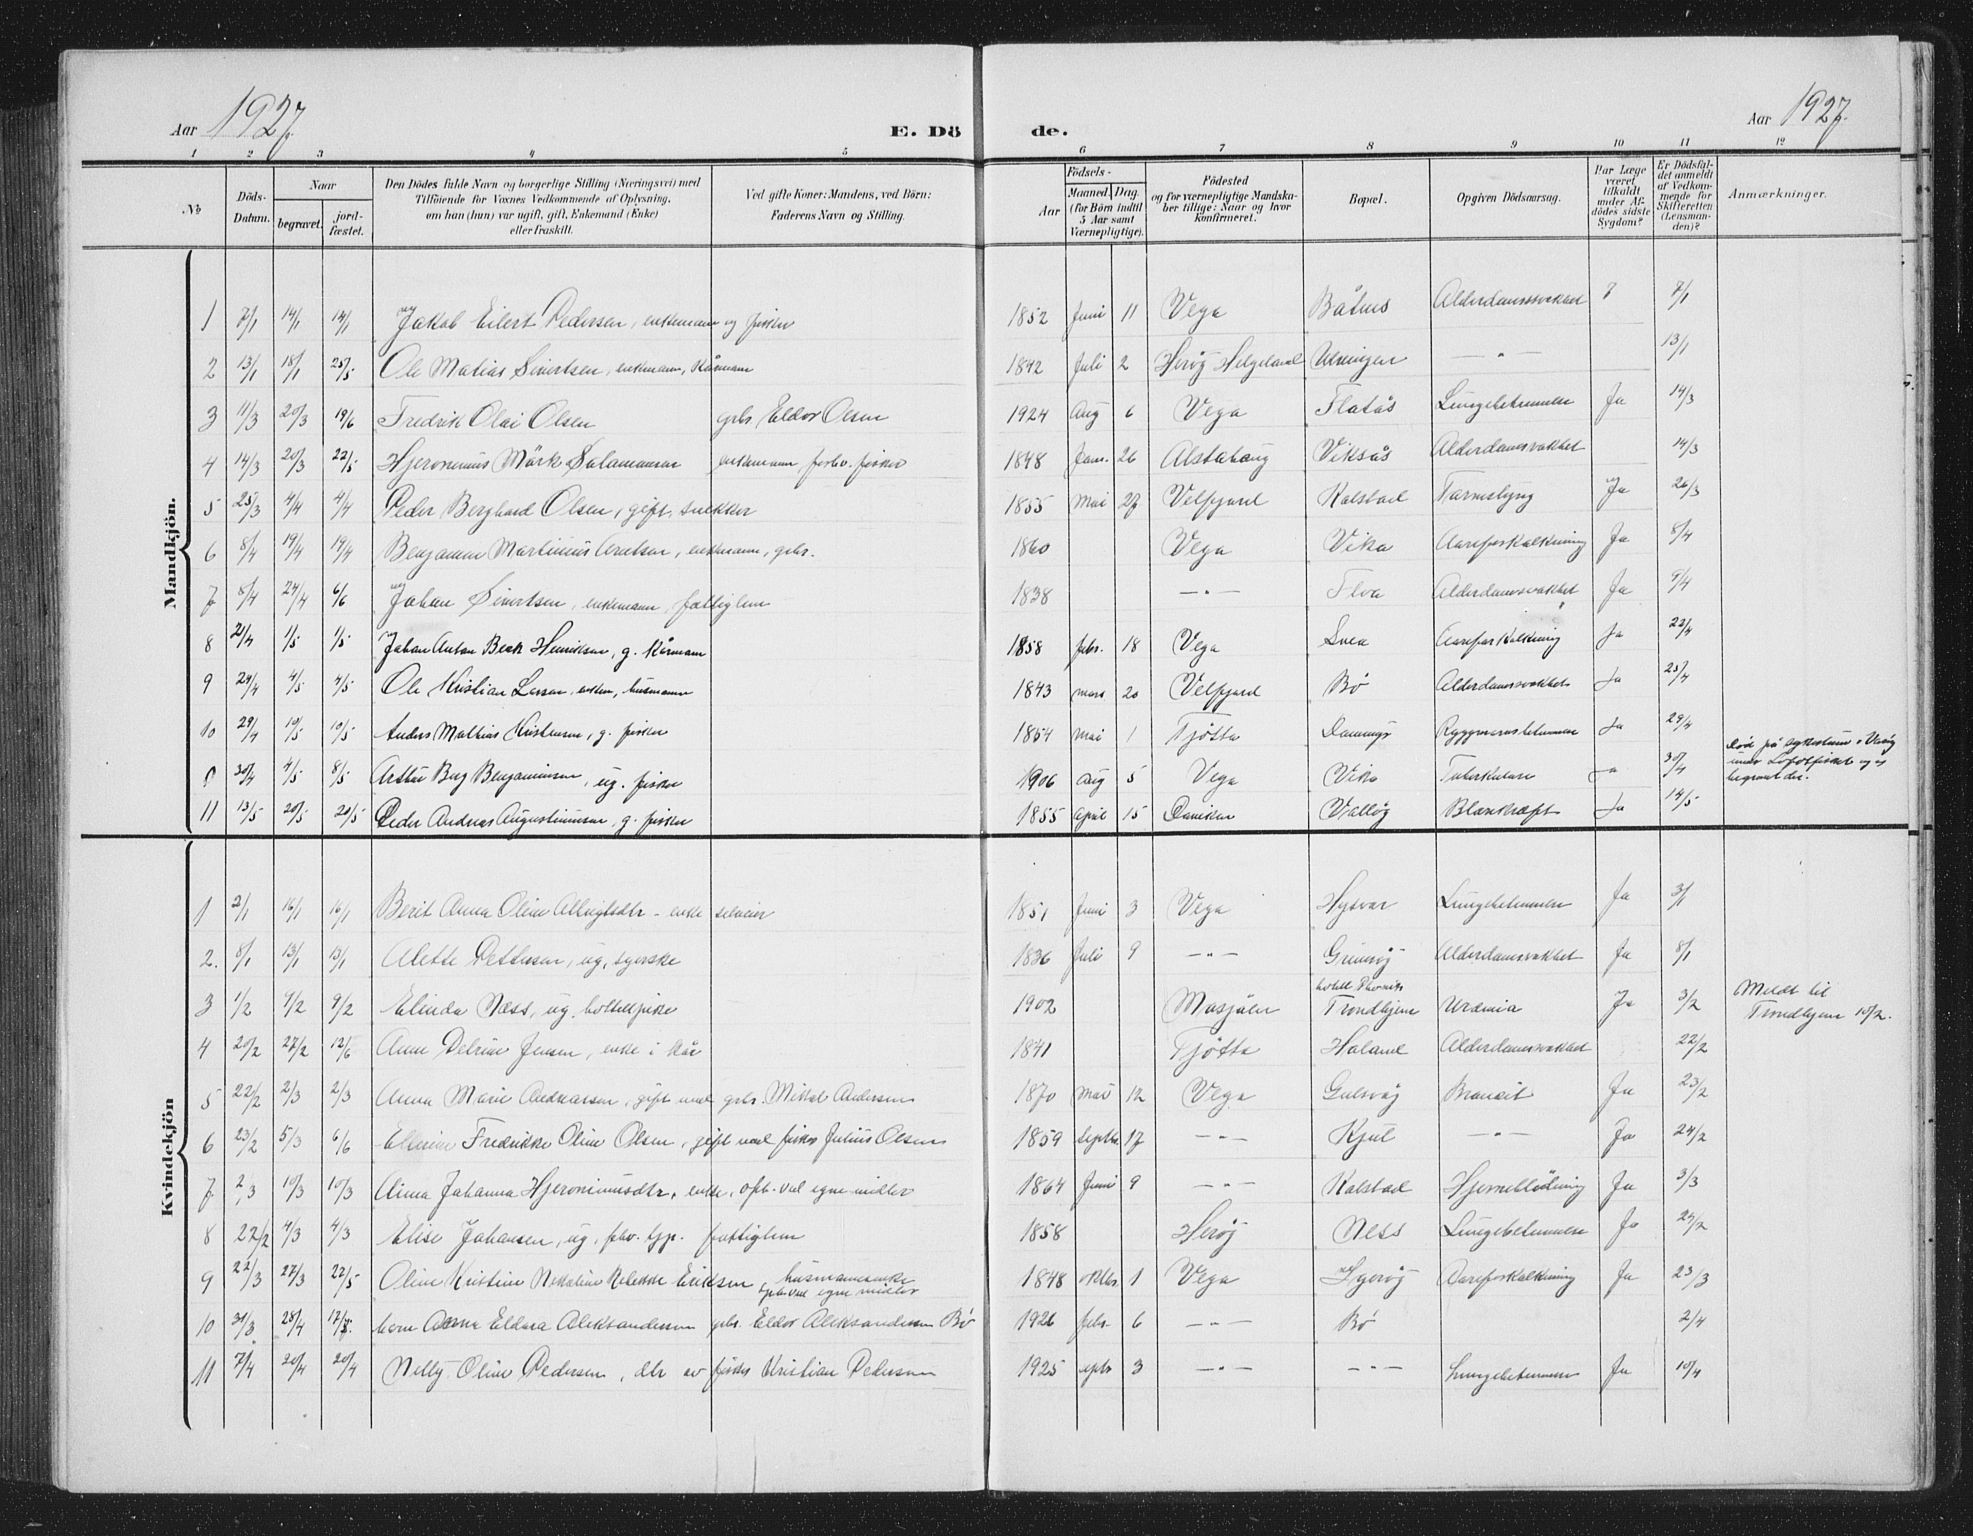 Aar 1927. E. Dö de. Aar 1927.
1 2 3 4 5 6 7 8 9 10 11 12
No Döds-Datum. Naar begravet. jordfæstet. Den Dödes fulde Navn og borgerlige Stilling (Næringsvei) med Tilföiende for Voxnes Vedkommende af Oplysning, om han (hun) var ugift, gift, Enkemand (Enke) eller fraskilt. Ved gifte Koner: Mandens, ved Börn: Faderens Navn og Stilling. Aar Födsels- Maaned Dag. (for Börn indtil 5 Aar samt Værnepligtige). Födested og for værnepligtige Mandskaber tillige: Naar og hvor konfirmeret. Bopæl. Opgiven Dödsaarsag. Har Læge været tilkaldt under Afdödes sidste Sygdom? Er Dödsfaldet anmeldt af Vedkommende for Skifteretten (Lensmanden)? Anmærkninger.
Mandkjön.
1 7/1 14/1 14/1 Jakob Eilert Pedersen, enkemann og fisker 1852 Juni 11 Vega Båtnes Alderdomssvakhet 7/1
2 13/1 18/1 25/5 Ole Matias Sivertsen, enkemann, Kårmann 1842 Juli 2 Herøy Helgeland Ulvingen — " — 13/1
3 11/3 20/3 19/6 Fredrik Olai Olsen grbr. Eldor Olsen 1924 Aug 6 Vega Flatås Lungebetennelse Ja 14/3
4 14/3 20/3 22/5 Hjeronimus Mörk Salamonsen enkemann, forhv. fisker 1848 Jan. 26 Alstahaug Viksås Alderdomsvakhet 14/3
5 25/3 4/4 4/4 Peder Berghard Olsen, gift, snekker 1855 Mai 27 Velfjord Rolstad Tarmslyng Ja 26/3
6 8/4 19/4 19/4 Benjamin Martinius Arntsen, enkemann, grbr. 1860 Vega Vika Aareforkalkning Ja 8/4
7 8/4 24/4 6/6 Johan Sivertsen, enkemann, fattiglem 1838 — " — Floa Alderdomsvakhet Ja 9/4
8 21/4 1/5 1/5 Johan Anton Beck Henriksen, g. Kårmann 1858 febr. 18 Vega Svea Aareforkalkning Ja 22/4
9 24/4 4/5 4/5 Ole Kristian Larsen, enkem, husmann 1843 mars 20 Velfjord Bø Alderdomsvakhet Ja 25/4
10 29/4 10/5 10/5 Anders Mathias Kristensen, g. fisker 1854 mai 1 Tjøtta Ryggmarvsbetennelse Ja 29/4
30/4 4/5 8/5 Arthur Berg Benjaminsen, ug. fisker 1906 Aug 5 Vega Vika Tuberkulose Ja 30/4 Död på sykestuen i Vaag under Lofotfisket og er begravet der.
11 13/5 20/5 20/5 Peder Andreas Augustinussen, g. fisker 1855 april 15 Vallöy Blærekræft Ja 14/5
Kvindekjön
1 2/1 16/1 16/1 Berit Anna Oline Albrigtsdtr - enke selveier 1851 Juni 3 Vega Hysvær Lungebetennelse Ja 3/1
2. 8/1 13/1 13/1 Alette Pettersen, ug, syerske 1836 Juli 9 — " — Grimsöy Alderdomsvakhet Ja 8/1
3 1/2 9/2 9/2 Elinda Næss, ug, hotellpike 1902 Mosjöen hotell Phoenix Trondhjem Uræmia Ja 3/2 Meldt til Trondhjem 10/2.
4 20/2 27/2 12/6 Anne Petrine Jensen, enke i kår 1841 Tjøtta Haland Alderdomsvakhet 22/2
5 22/2 2/3 2/3 Anna Marie Andreassen, gift med grbr. Mikal Andersen 1870 Mai 12 Vega Gulsvåg Bronkit Ja 23/2
6 23/2 5/3 6/6 Fredrikke Oline Olsen, gift med fisker Julius Olsen 1859 Septbr. 17 — " — Kjul — " — Ja 24/2
7 2/3 10/3 10/3 Anna Johanna Hjeronimusdtr, enke, oph. ved egne midler 1864 Juni 9 — " — Rolstad Hjerneblödning Ja 3/3
8 22/2 4/3 4/3 Elise Johansen, ug, fhv. tjp. fattiglem 1858 Heröy Ness Lungebetennelse Ja 24/2
9 22/3 27/3 22/5 Oline Kristine Eriksen, husmannsenke oph. ved egne midler 1848 oktbr. 1 Vega Aareforkalkning Ja 23/3
10 31/3 28/4 Anna Eldara Aleksandersen grbr. Eldor Aleksandersen Bö 1926 febr. 6 — " — Bö 2/4
11 7/4 20/4 20/4 Nelly Oline Pedersen, dtr av fisker Kristian Pedersen 1925 3 — " — — " — Lungebetennelse Ja 10/4